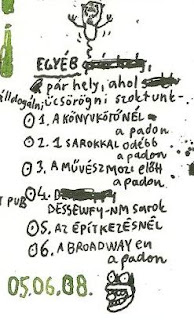 EGYÉB
pár hely, ahol
álldogálni, ücsörögni szoktunk-
1. A KÖNYVKÖTŐNÉL
a padon
2. 1 SAROKKAL odébb
a padon
3. A MŰVÉSZMOZI előtt
a padon
4. D
DESSEWFY-NM sarok
5. AZ ÉPÍTKEZÉSNÉL
6. A BROADWAY en
a padon
05.06.08.